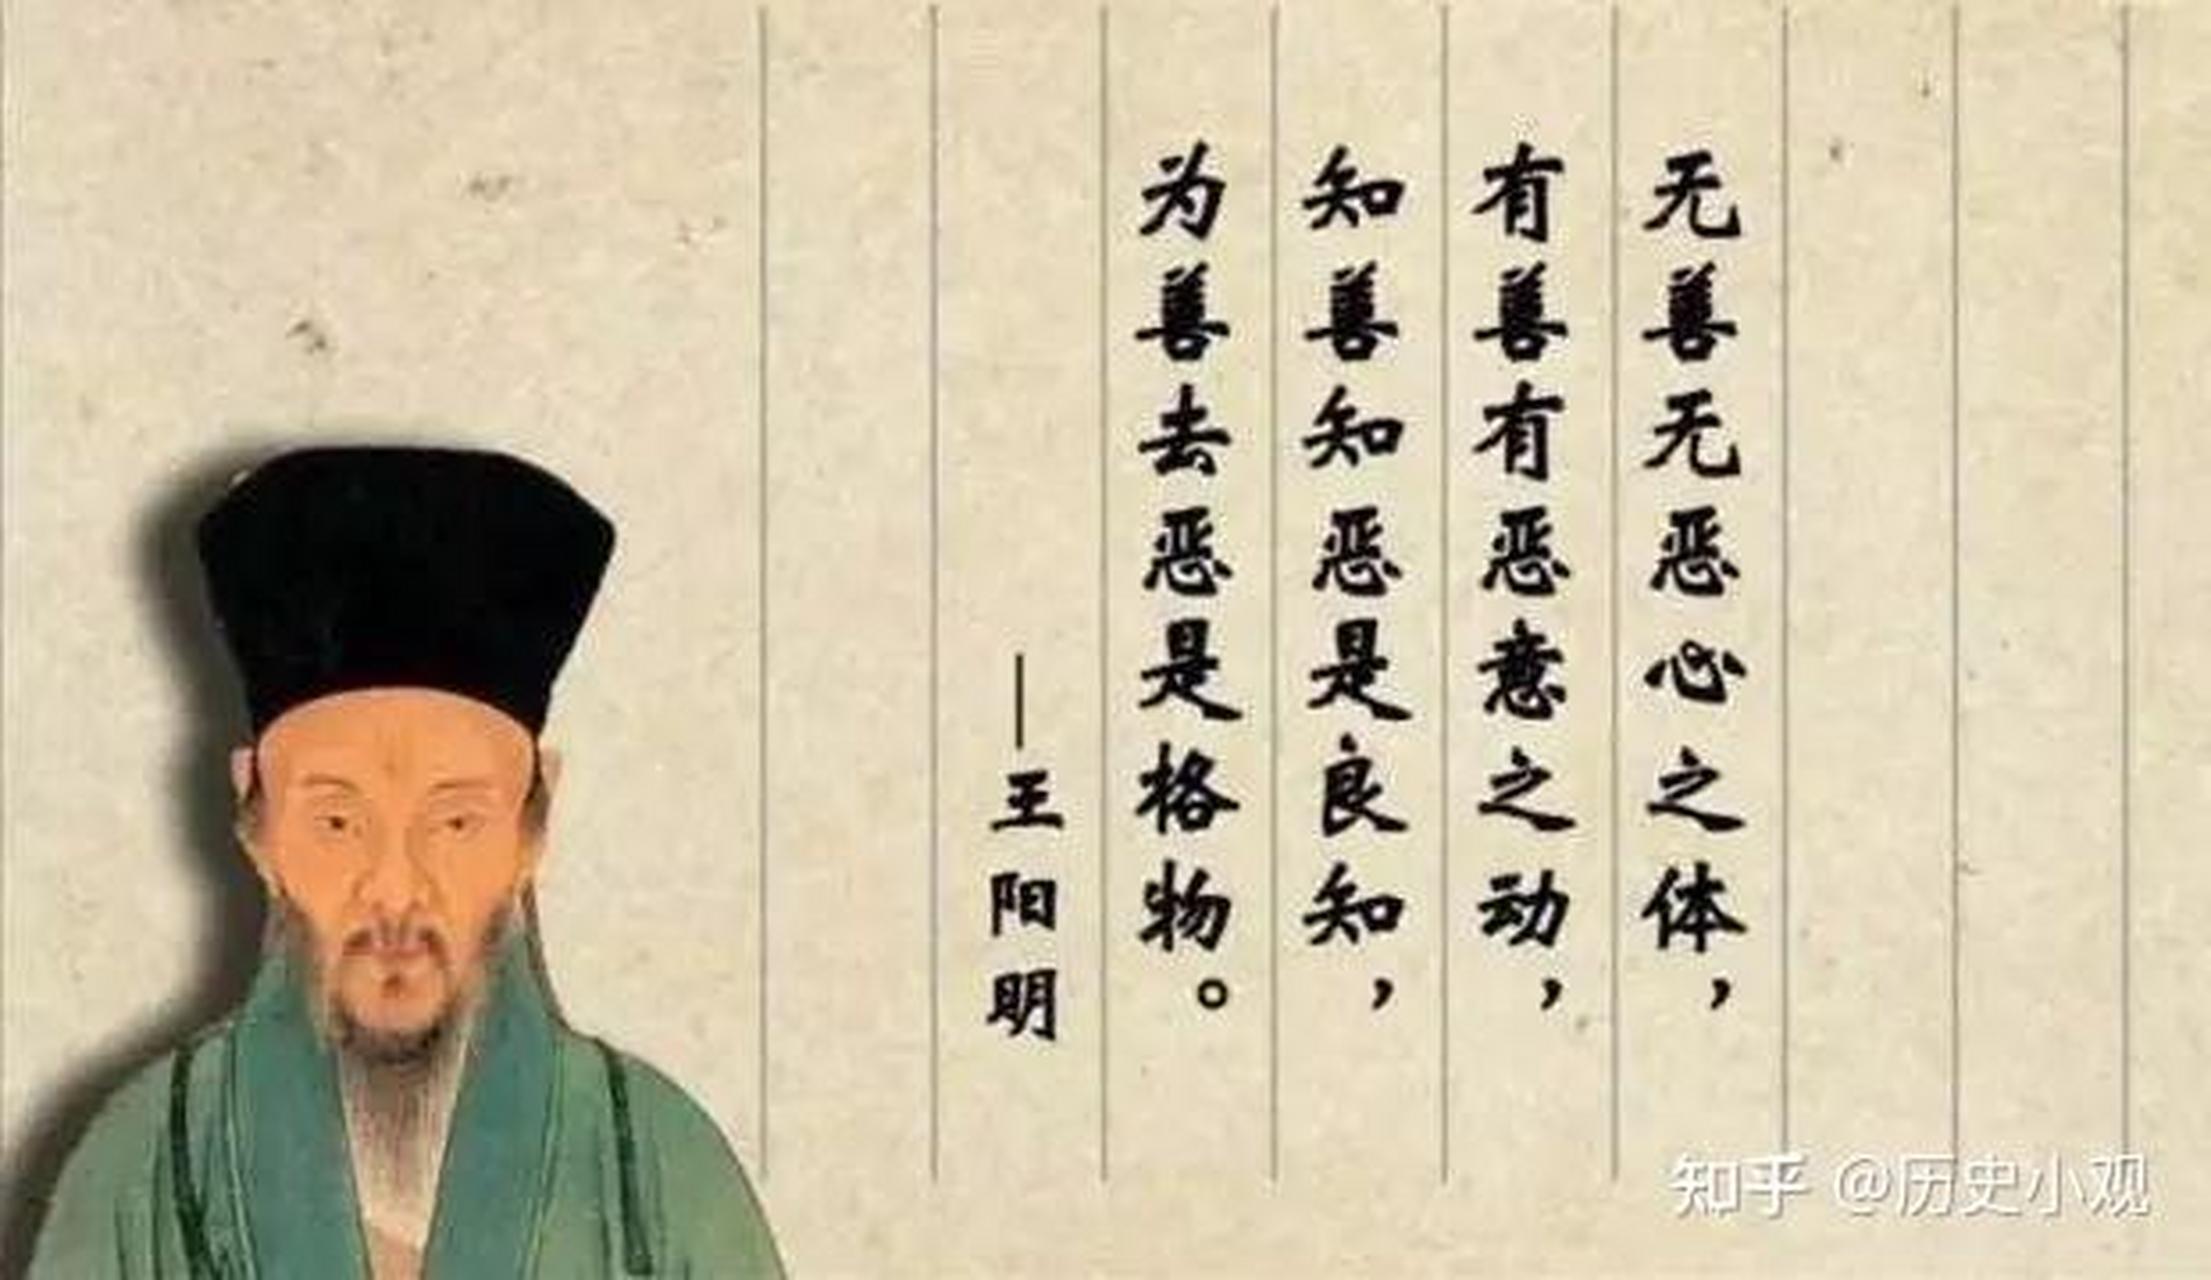 无善无恶心之体，
有善有恶意之动，
知善知恶是良知，
为善去恶是格物。
——王阳明
知乎 @历史小观